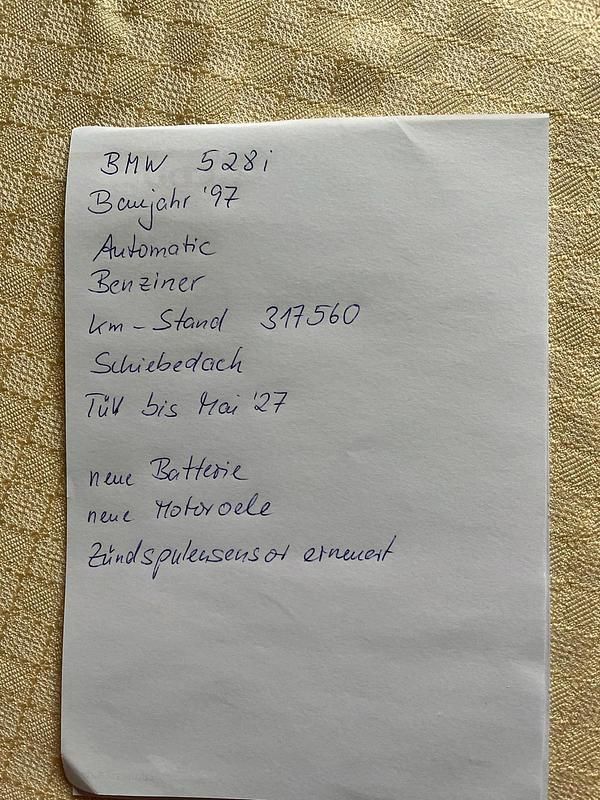 BMW 528i
Baujahr '97
Automatic
Benziner
km - Stand 317560
Schiebedach
TüV bis Mai '27
neue Batterie
neue Motoroele
Zündspulensensor erneuert